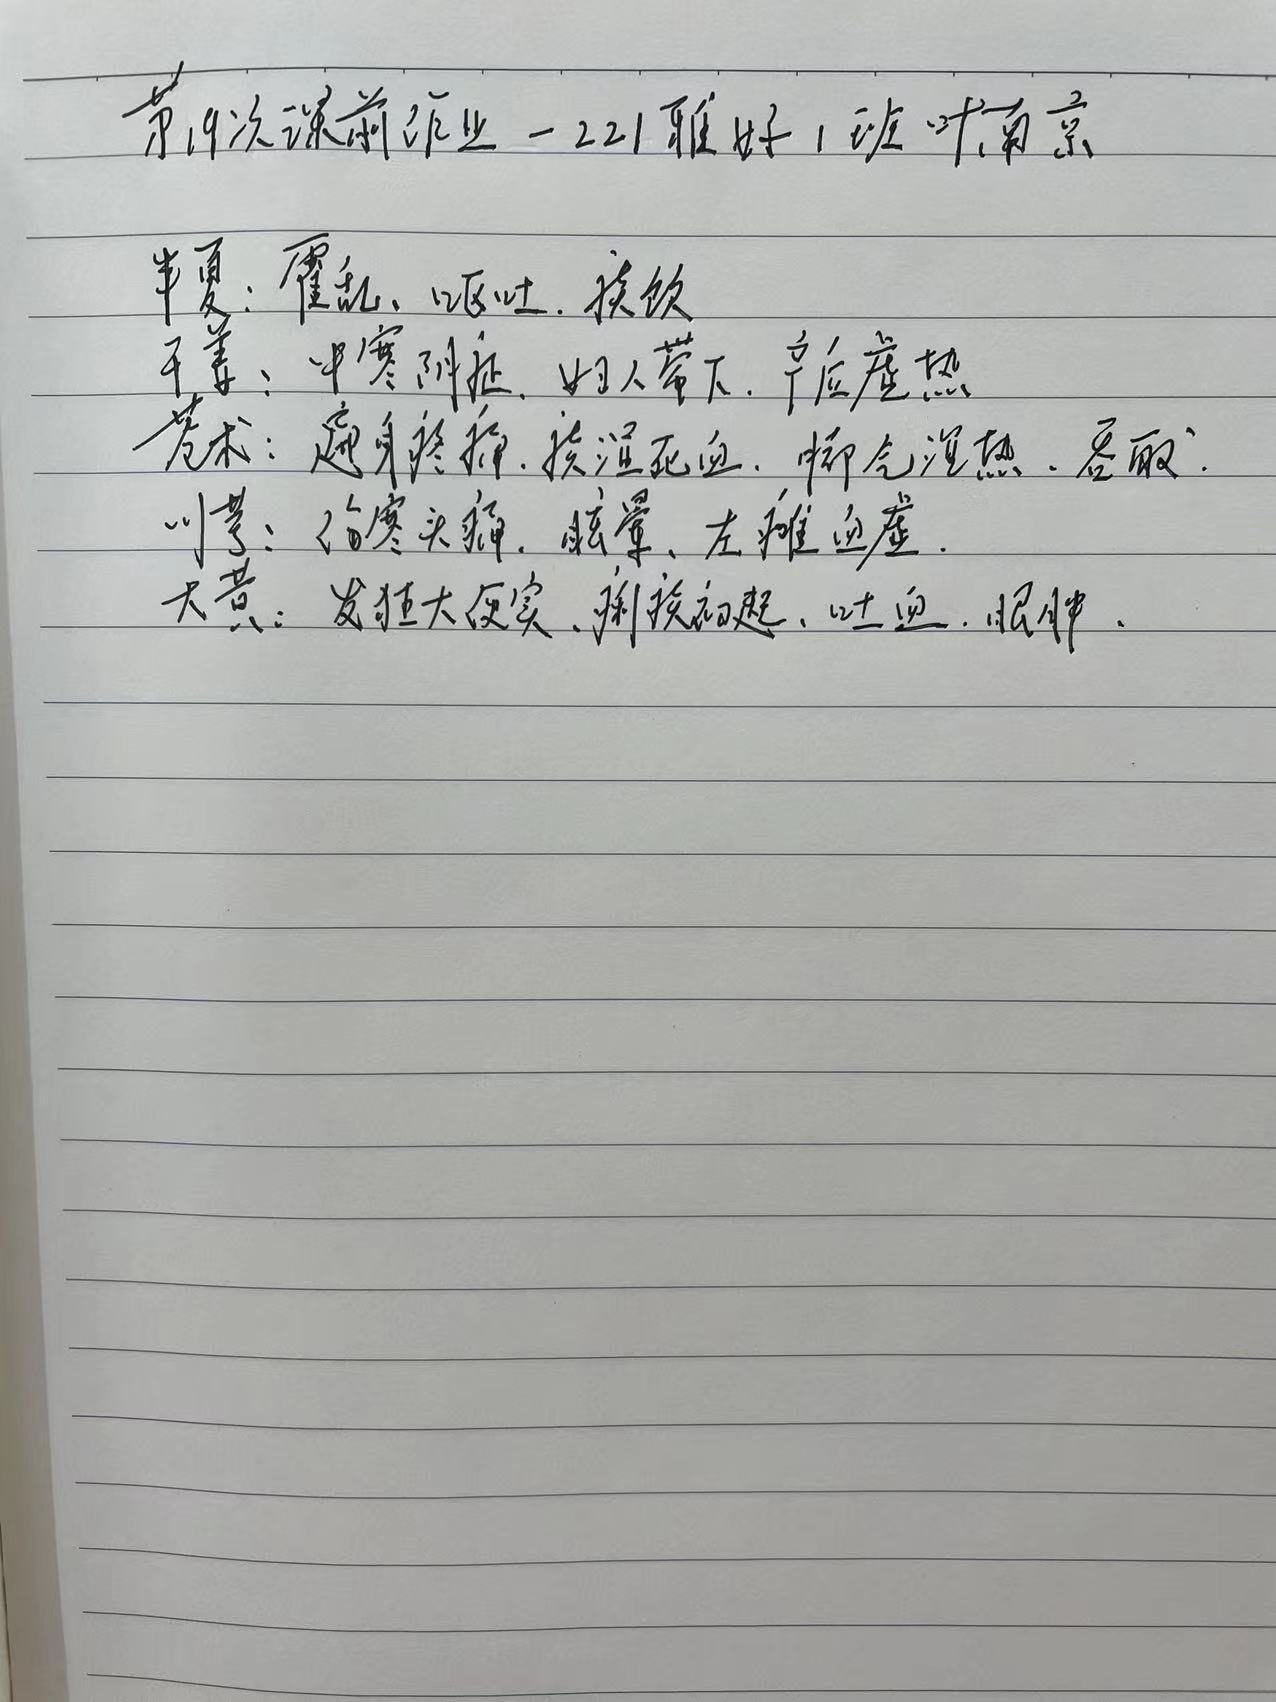 第19次课前作业-221雅好1班叶南京
半夏：霍乱、呕吐、痰饮
干姜：中寒阴症、妇人带下、产后虚热
苍术：遍身疼痛、痰湿死血、脚气湿热、吞酸、
川芎：伤寒头痛、眩晕、左瘫血虚、
大黄：发狂大便实、痢疾初起、吐血、眼肿、